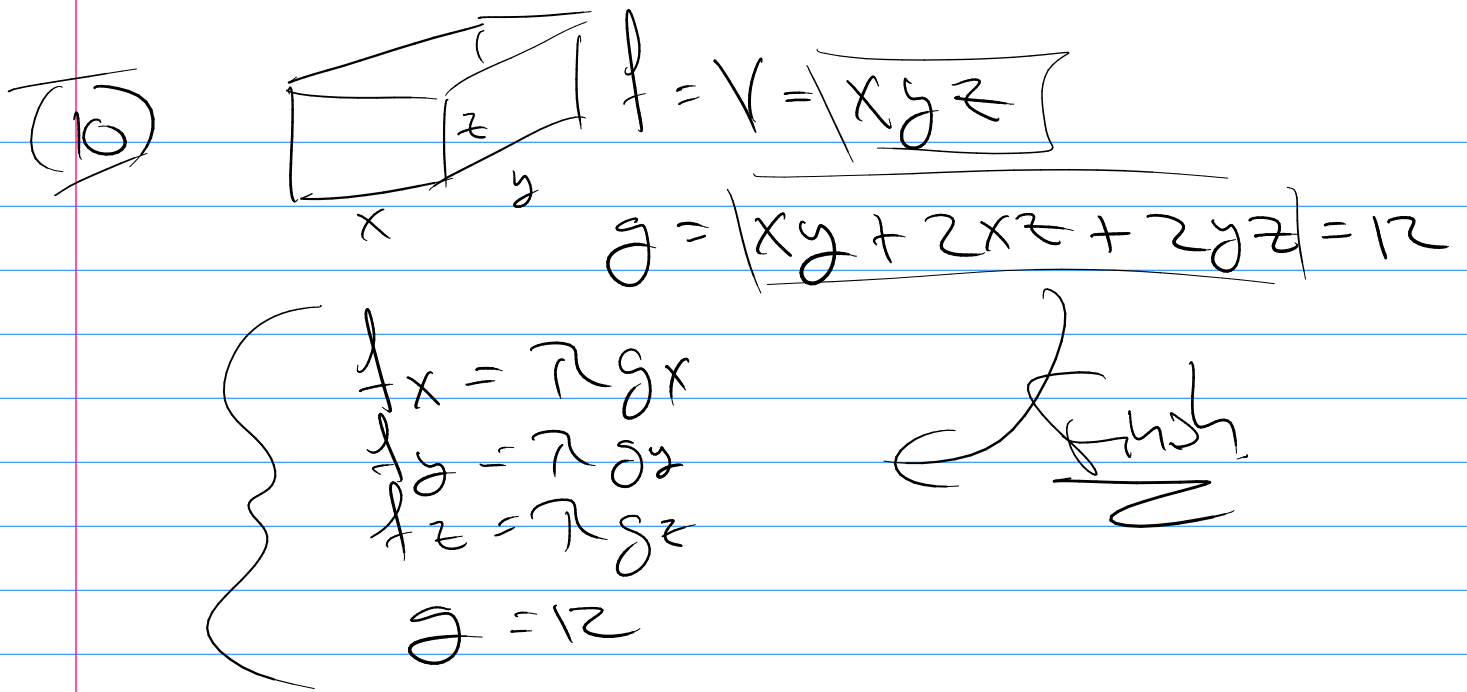 (10)
z
y
x
f = V = xyz
g = xy + 2xz + 2yz = 12
fx = λgx
fy = λgy
fz = λgz
g = 12
finish